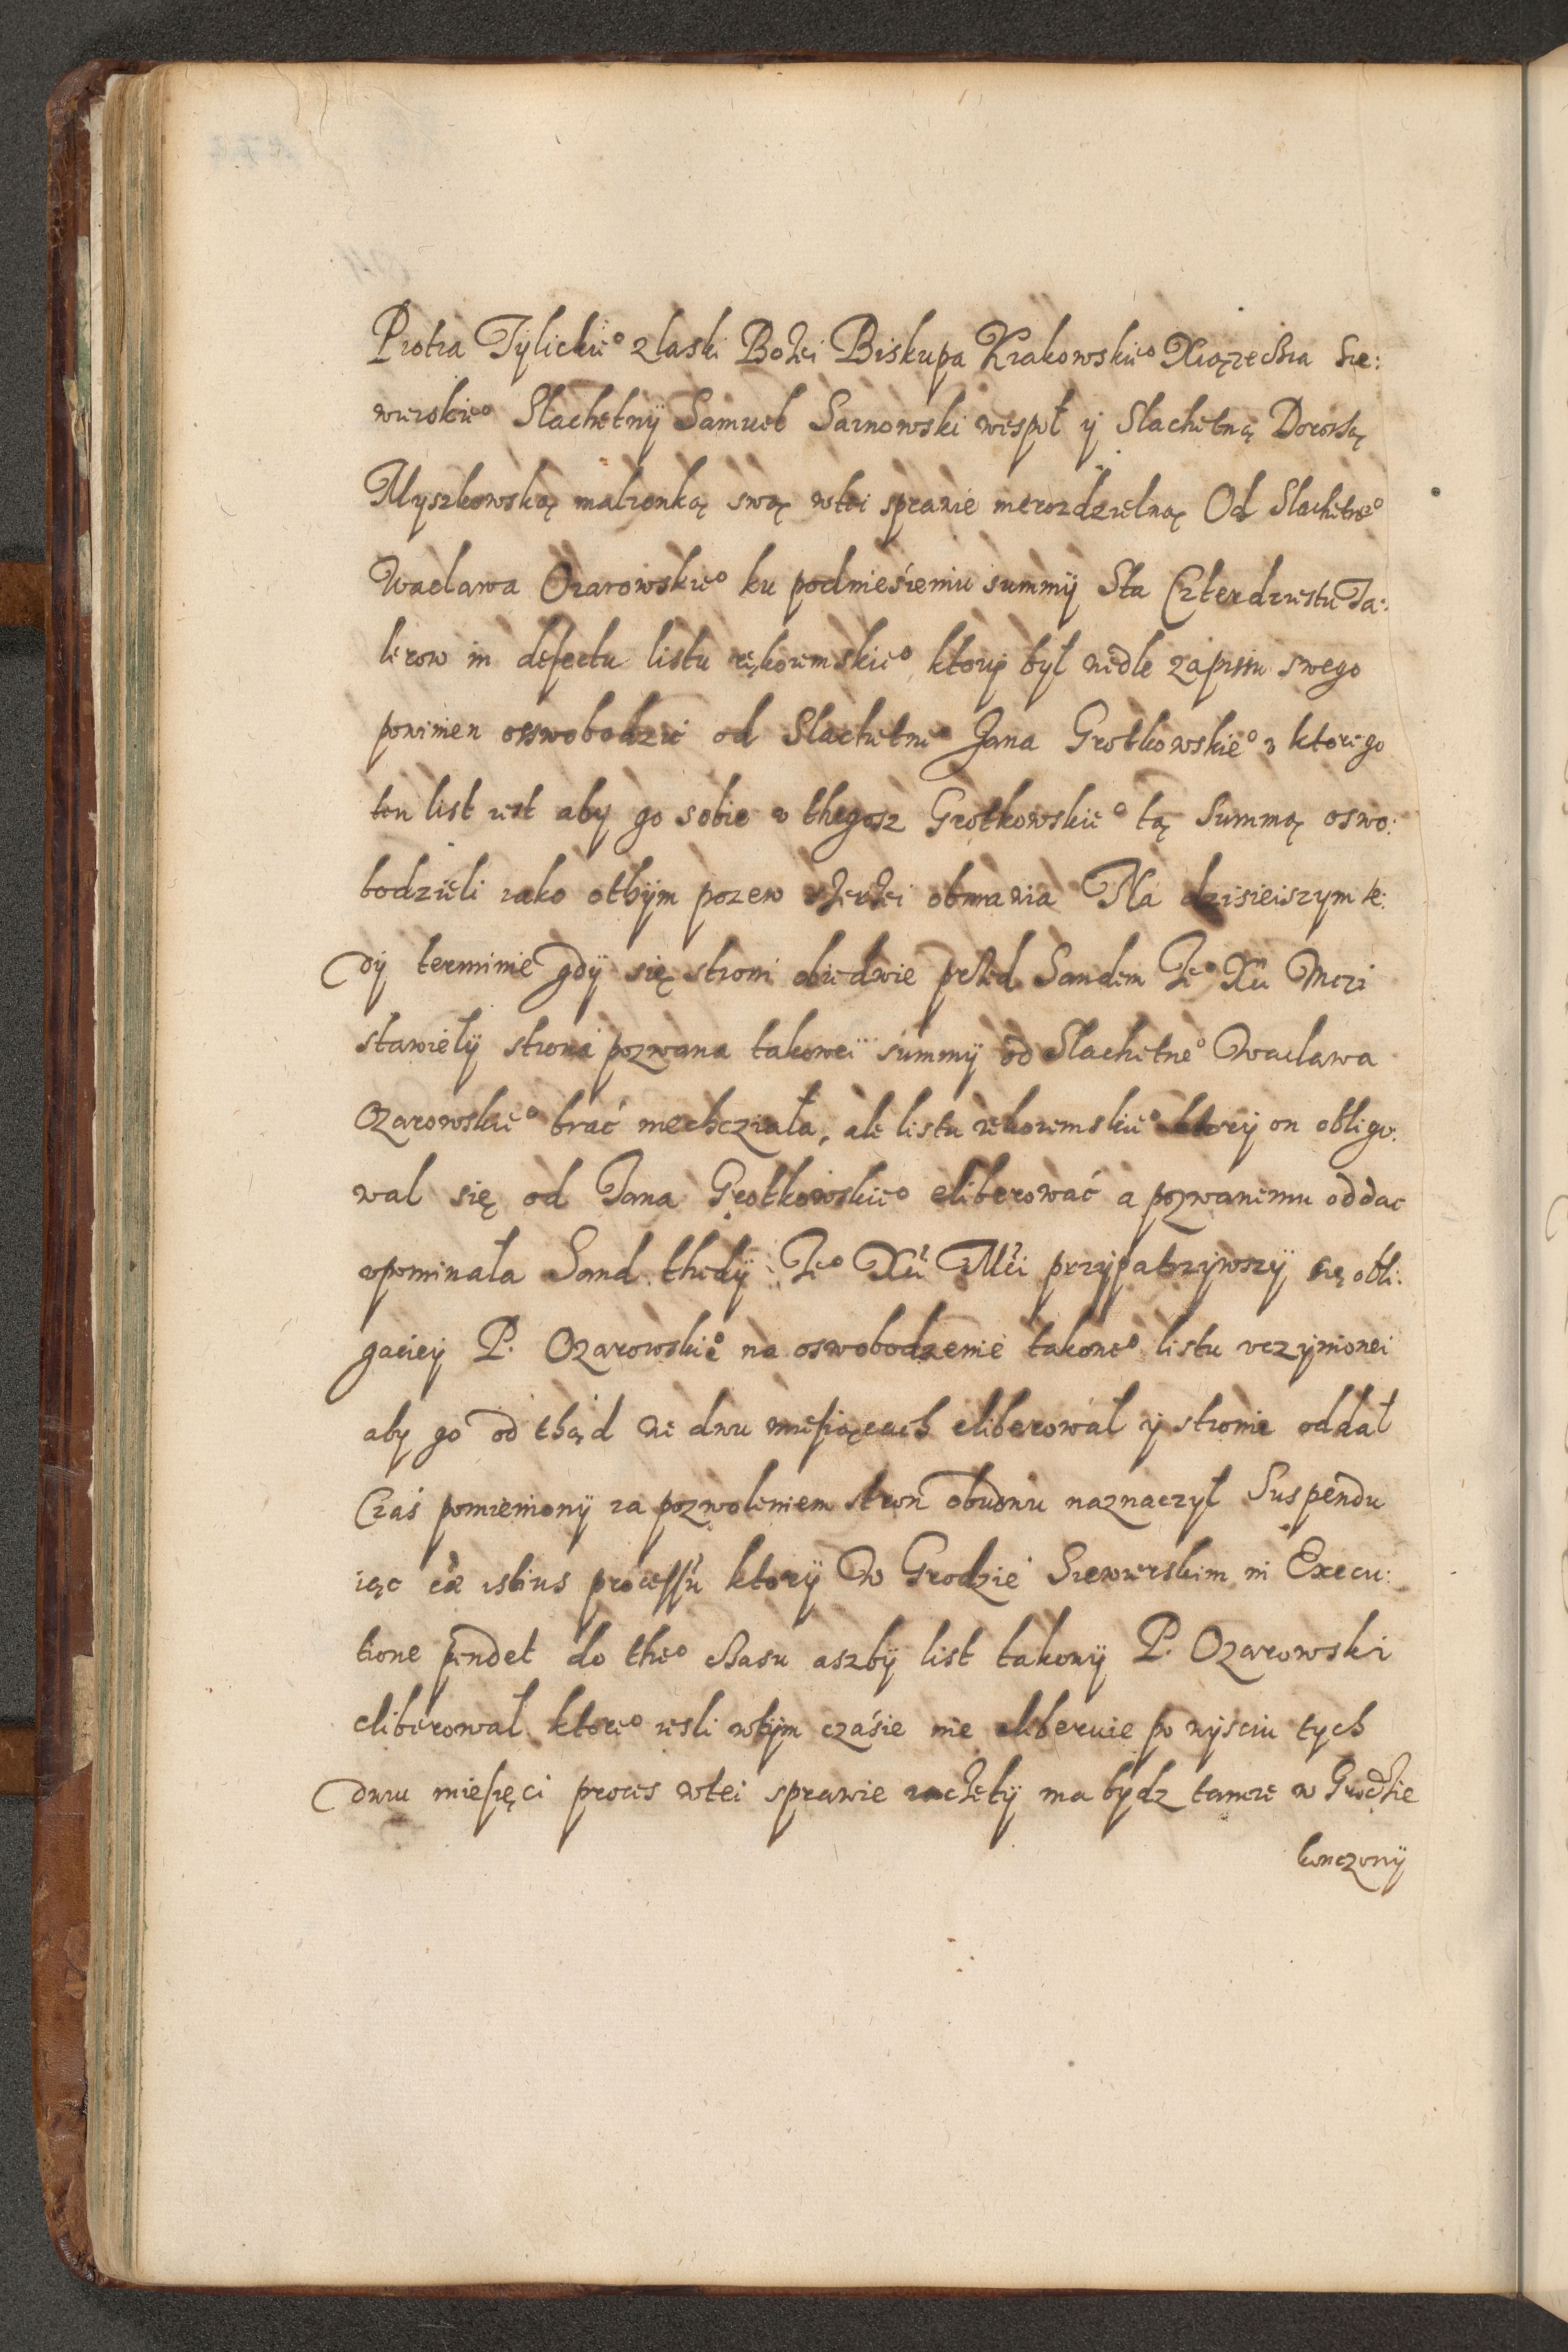 Piotra Tylickie° z łaski Bożei Biskupa Krakowskie° Xiążecia Sie:
wierskie° Slachetnÿ Samuel Sarnowski wespoł ÿ Slachetną Dorothą
Myszkowską małzonką swą wtei sprawie nierozdzielną Od Slachetne°
Wacława Ozarowskie° ku podniesieniu summÿ Sta Czterdziestu Ta:
lerow in defectu listu rękoiemskie°, ktorÿ był wedle zapissu swego
powinien osswobodzić od Slachetne° Jana Grotkowskie° v ktorego
ten list iest aby go sobie v thegosz Grotkowskie° tą Summą oswo:
bodzieli iako othÿm pozew szerzei obmawia Na dzisieiszym te:
dÿ terminie gdÿ się stroni obiedwie przed Sandem Je° Xn Mczi
stawiełÿ strona pozwana takoweÿ summÿ od Slachetne° Wacława
Ozarowskie° brać niechcziała, ale listu rękoiemskie° ktorÿ on obligo:
wal się od Jana Grotkowskie° eliberować a pozwanemu oddac
vpominała Sand thedÿ Je° Xei Mei przÿpatrzÿwszÿ się obli:
gaciey P. Ozarowskie° na oswobodzenie takowe° listu vczÿnionei
aby go od thąd we dwu miesiącach eliberował ÿ stronie oddał
Czas pomienionÿ za pozwoleniem stron obudwu naznaczył Suspendu
iąc istius processu ktorÿ W Grodzie Siewierskim in Execu:
tione pendet do the° czasu aszbÿ list takowÿ P. Ozarowski
eliberował ktore° iesli wtÿm czasie nie eliberuie po wÿsciu tych
dwu miesięci proces wtei sprawie zaczetÿ ma bÿdz tamze w Grodzie
konczonÿ